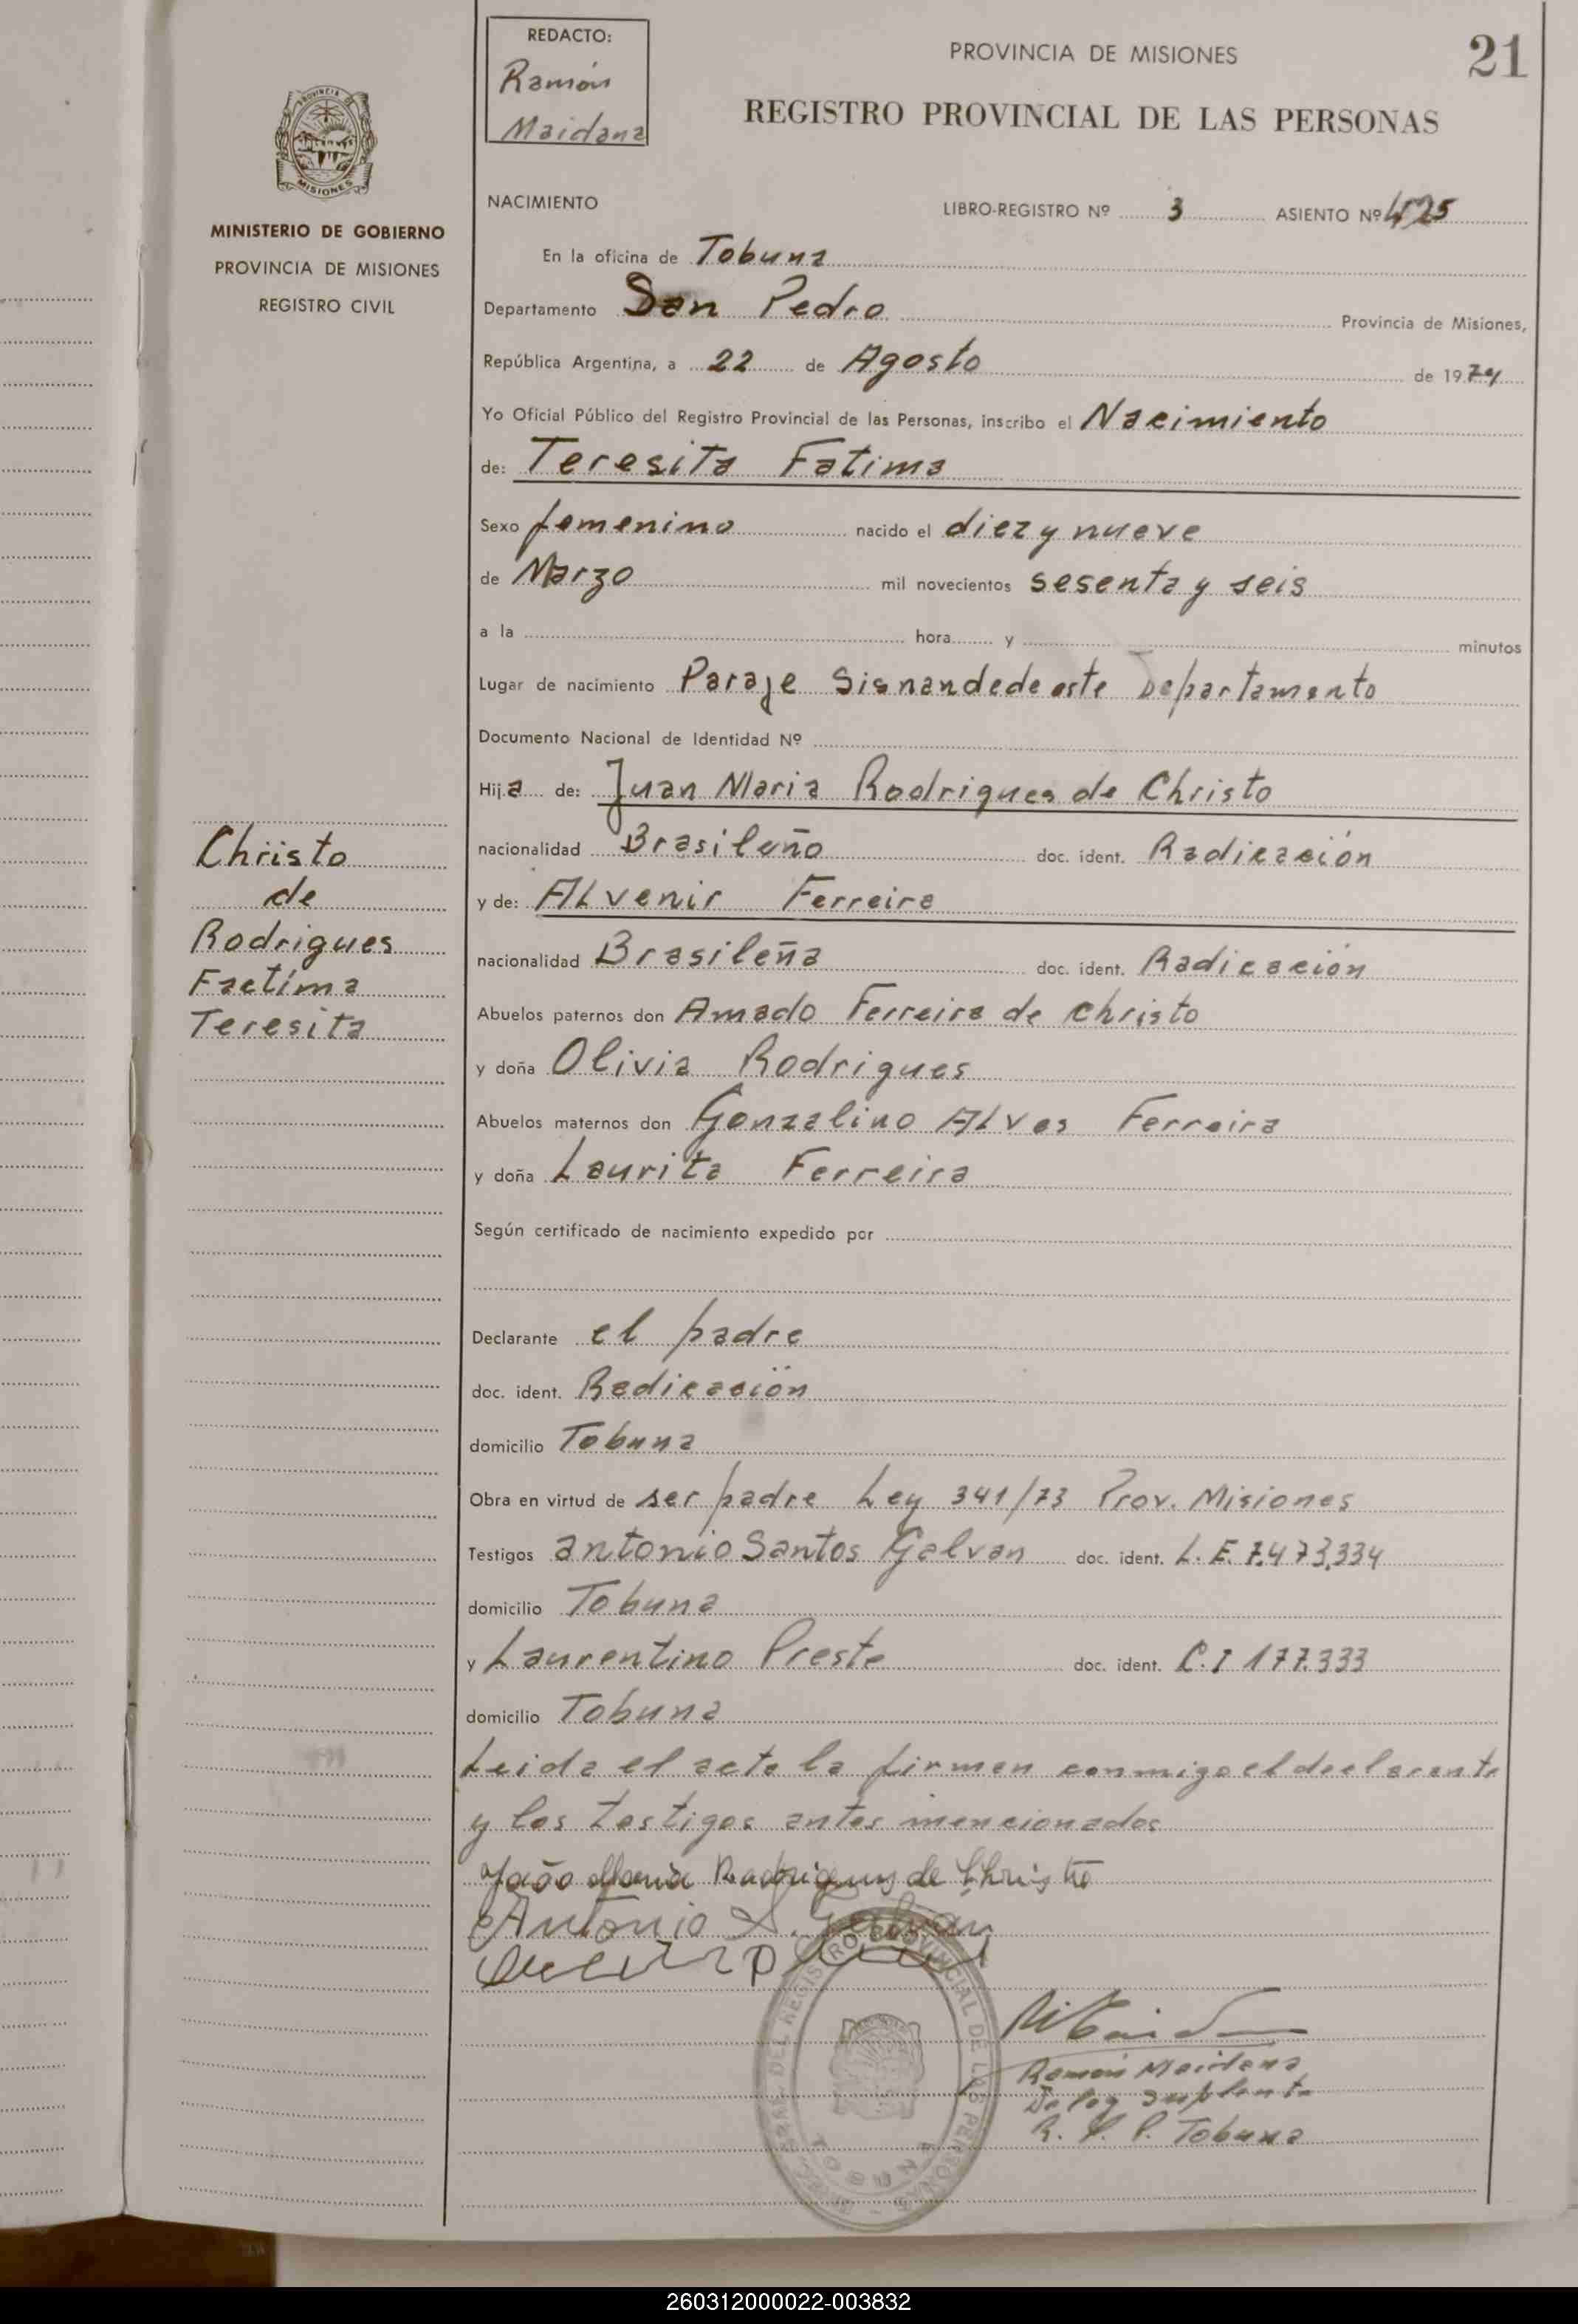 REDACTO:
Ramón
Maidana
PROVINCIA DE MISIONES
21
REGISTRO PROVINCIAL DE LAS PERSONAS
PROVINCIA DE
MISIONES
MINISTERIO DE GOBIERNO
PROVINCIA DE MISIONES
REGISTRO CIVIL
NACIMIENTO LIBRO-REGISTRO Nº 3 ASIENTO Nº 425
En la oficina de Tobuna
Departamento San Pedro Provincia de Misiones,
República Argentina, a 22 de Agosto de 1974
Yo Oficial Público del Registro Provincial de las Personas, inscribo el Nacimiento
de: Teresita Fatima
Sexo femenino nacido el diez y nueve
de Marzo mil novecientos sesenta y seis
a la hora y minutos
Lugar de nacimiento Paraje Sisnandede este Departamento
Documento Nacional de Identidad Nº
Hija de: Juan Maria Rodrigues de Christo
nacionalidad Brasileño doc. ident. Radicación
y de: Alvenir Ferreira
nacionalidad Brasileña doc. ident. Radicación
Abuelos paternos don Amado Ferreira de christo
y doña Olivia Rodrigues
Abuelos maternos don Gonzalino Alves Ferreira
y doña Laurita Ferreira
Según certificado de nacimiento expedido por
Declarante el padre
doc. ident. Radicación
domicilio Tobuna
Obra en virtud de ser padre Ley 341/73 Prov. Misiones
Testigos antonio Santos Galvan doc. ident. L. E. 7.473,334
domicilio Tobuna
y Laurentino Preste doc. ident. C. I 177.333
domicilio Tobuna
Leida el acta la firman conmigo el declarante
y los testigos antes mencionados
João Maria Rodrigues de Christo
Antonio S. Galvan
Ramón Maidana
Deleg suplente
R. P. P. Tobuna
REGISTRO PROVINCIAL DE LAS PERSONAS
TOBUNA
Christo
de
Rodrigues
Factíma
Teresita
260312000022-003832